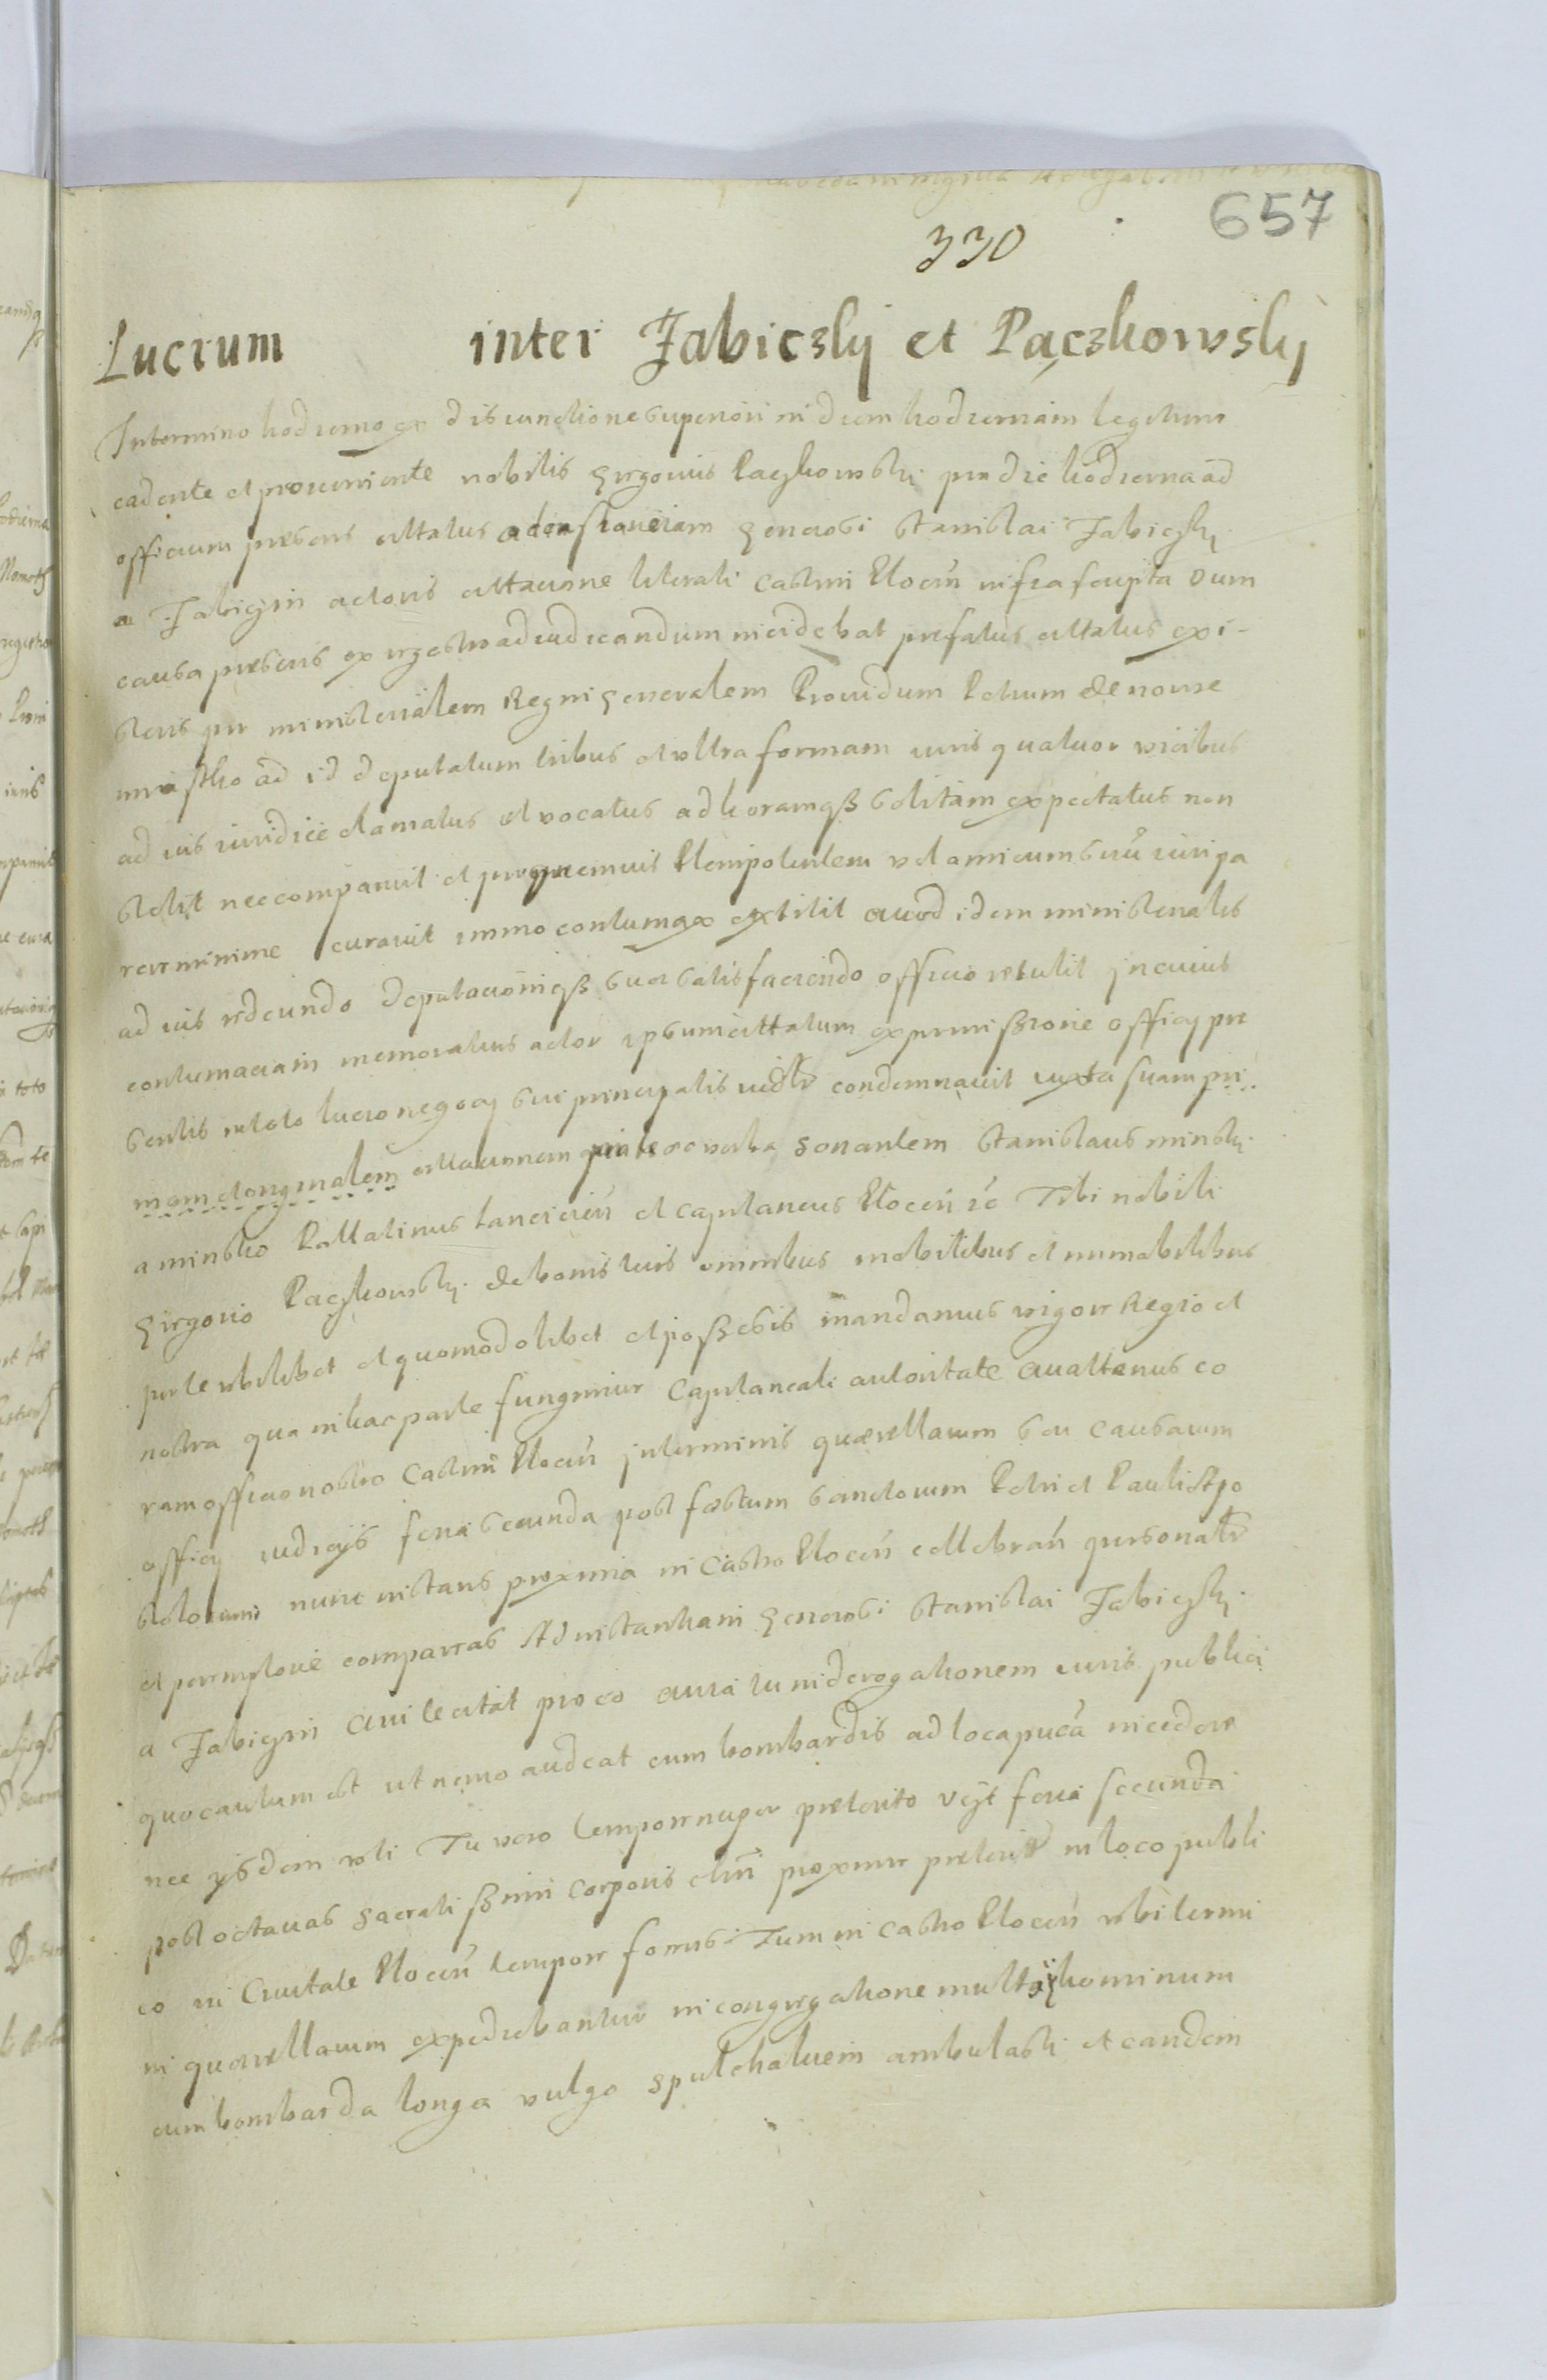 657
330
Lucrum inter Jabiczky et Pączkowsky
In termino hodierno ex disiunctione superiori in diem hodiernam legitime
cadente et proveniente nobilis Grgorius Paczkowsky pro die hodierna ad
officium presens citatus ad instanciam generosi Stanislai Jabiczky
a Jabiczin actoris citacione literali castrensi Plocen infrascripta dum
causa presens ex regestro ad iudicandum incidebat prefatus citatus exi-
stens per ministerialem Regni generalem Providum Petrum de nowe
miastho ad id deputatum tribus et ultra formam iuris quatuor vicibus
ad ius iuridice clamatus et vocatus ad horamqß solitam expectatus non
stetit nec comparuit et per quemvis Plenipotentem vel amicum suu iuri pa
rere minime curavit immo contumax extitit quod idem ministerialis
ad ius redeundo deputacioniqß sue satisfaciendo officio retulit in cuius
contumaciam memoratus actor ipsum citatum ex permissione officy pre
sentis in toto lucro negocy sui principalis condemnavit iuxta suam pri
mam et originalem citacionem verba sonantem Stanislaus minsky
a minsko Pallatinus Lanciicień et capitaneus Ploceń Tibi nobili
Grgorio Paczkowsky de bonis tuis omnibus mobilibus et immobilibus
per te ubilibet et quomodolibet et poßesis mandamus vigore Regio et
nostra qua in hac parte fungimur Capitaneali autoritate quattenus co
ram officio nostro Castrensi Ploceń in terminis querellarum seu causarum
officy iudicyś feria secunda post festum sanctorum Petri et Pauli Apo
stolorum nunc instans proxima in Castro Ploceń cellebrań personalr
et peremptorie compareas Ad instantiam generosi Stanislai Jabiczky
a Jabiczin qui te citat pro eo quia tu in derogationem iuris publici
quo cautum est ut nemo audeat cum bombardis ad loca puca incedere
nec ysdem uti Tu vero tempore nuper preterito vzt feria secunda
post octavas sacratißimi Corporis proxime preterit in loco publi
co in Civitate Ploceń tempore forensi Tum in castro Ploceń ubi termi
ni querellarum expediebantur in congregatione multa hominum
cum bombarda longa vulgo spulchakiem ambulasti et eandem